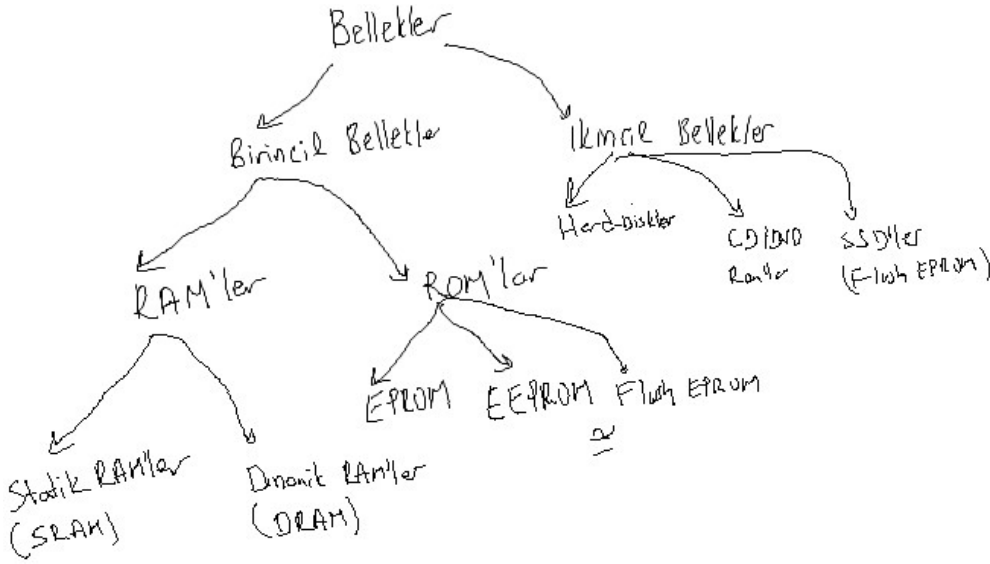 Bellekler
Birincil Bellekler
Ikincil Bellekler
Hard-Diskler
CD/DVD
Rom'lar
SSD'ler
(Flash EPROM)
RAM'ler
ROM'lar
EPROM
EEPROM
Flash EPROM
Statik RAM'ler
(SRAM)
Dinamik RAM'ler
(DRAM)